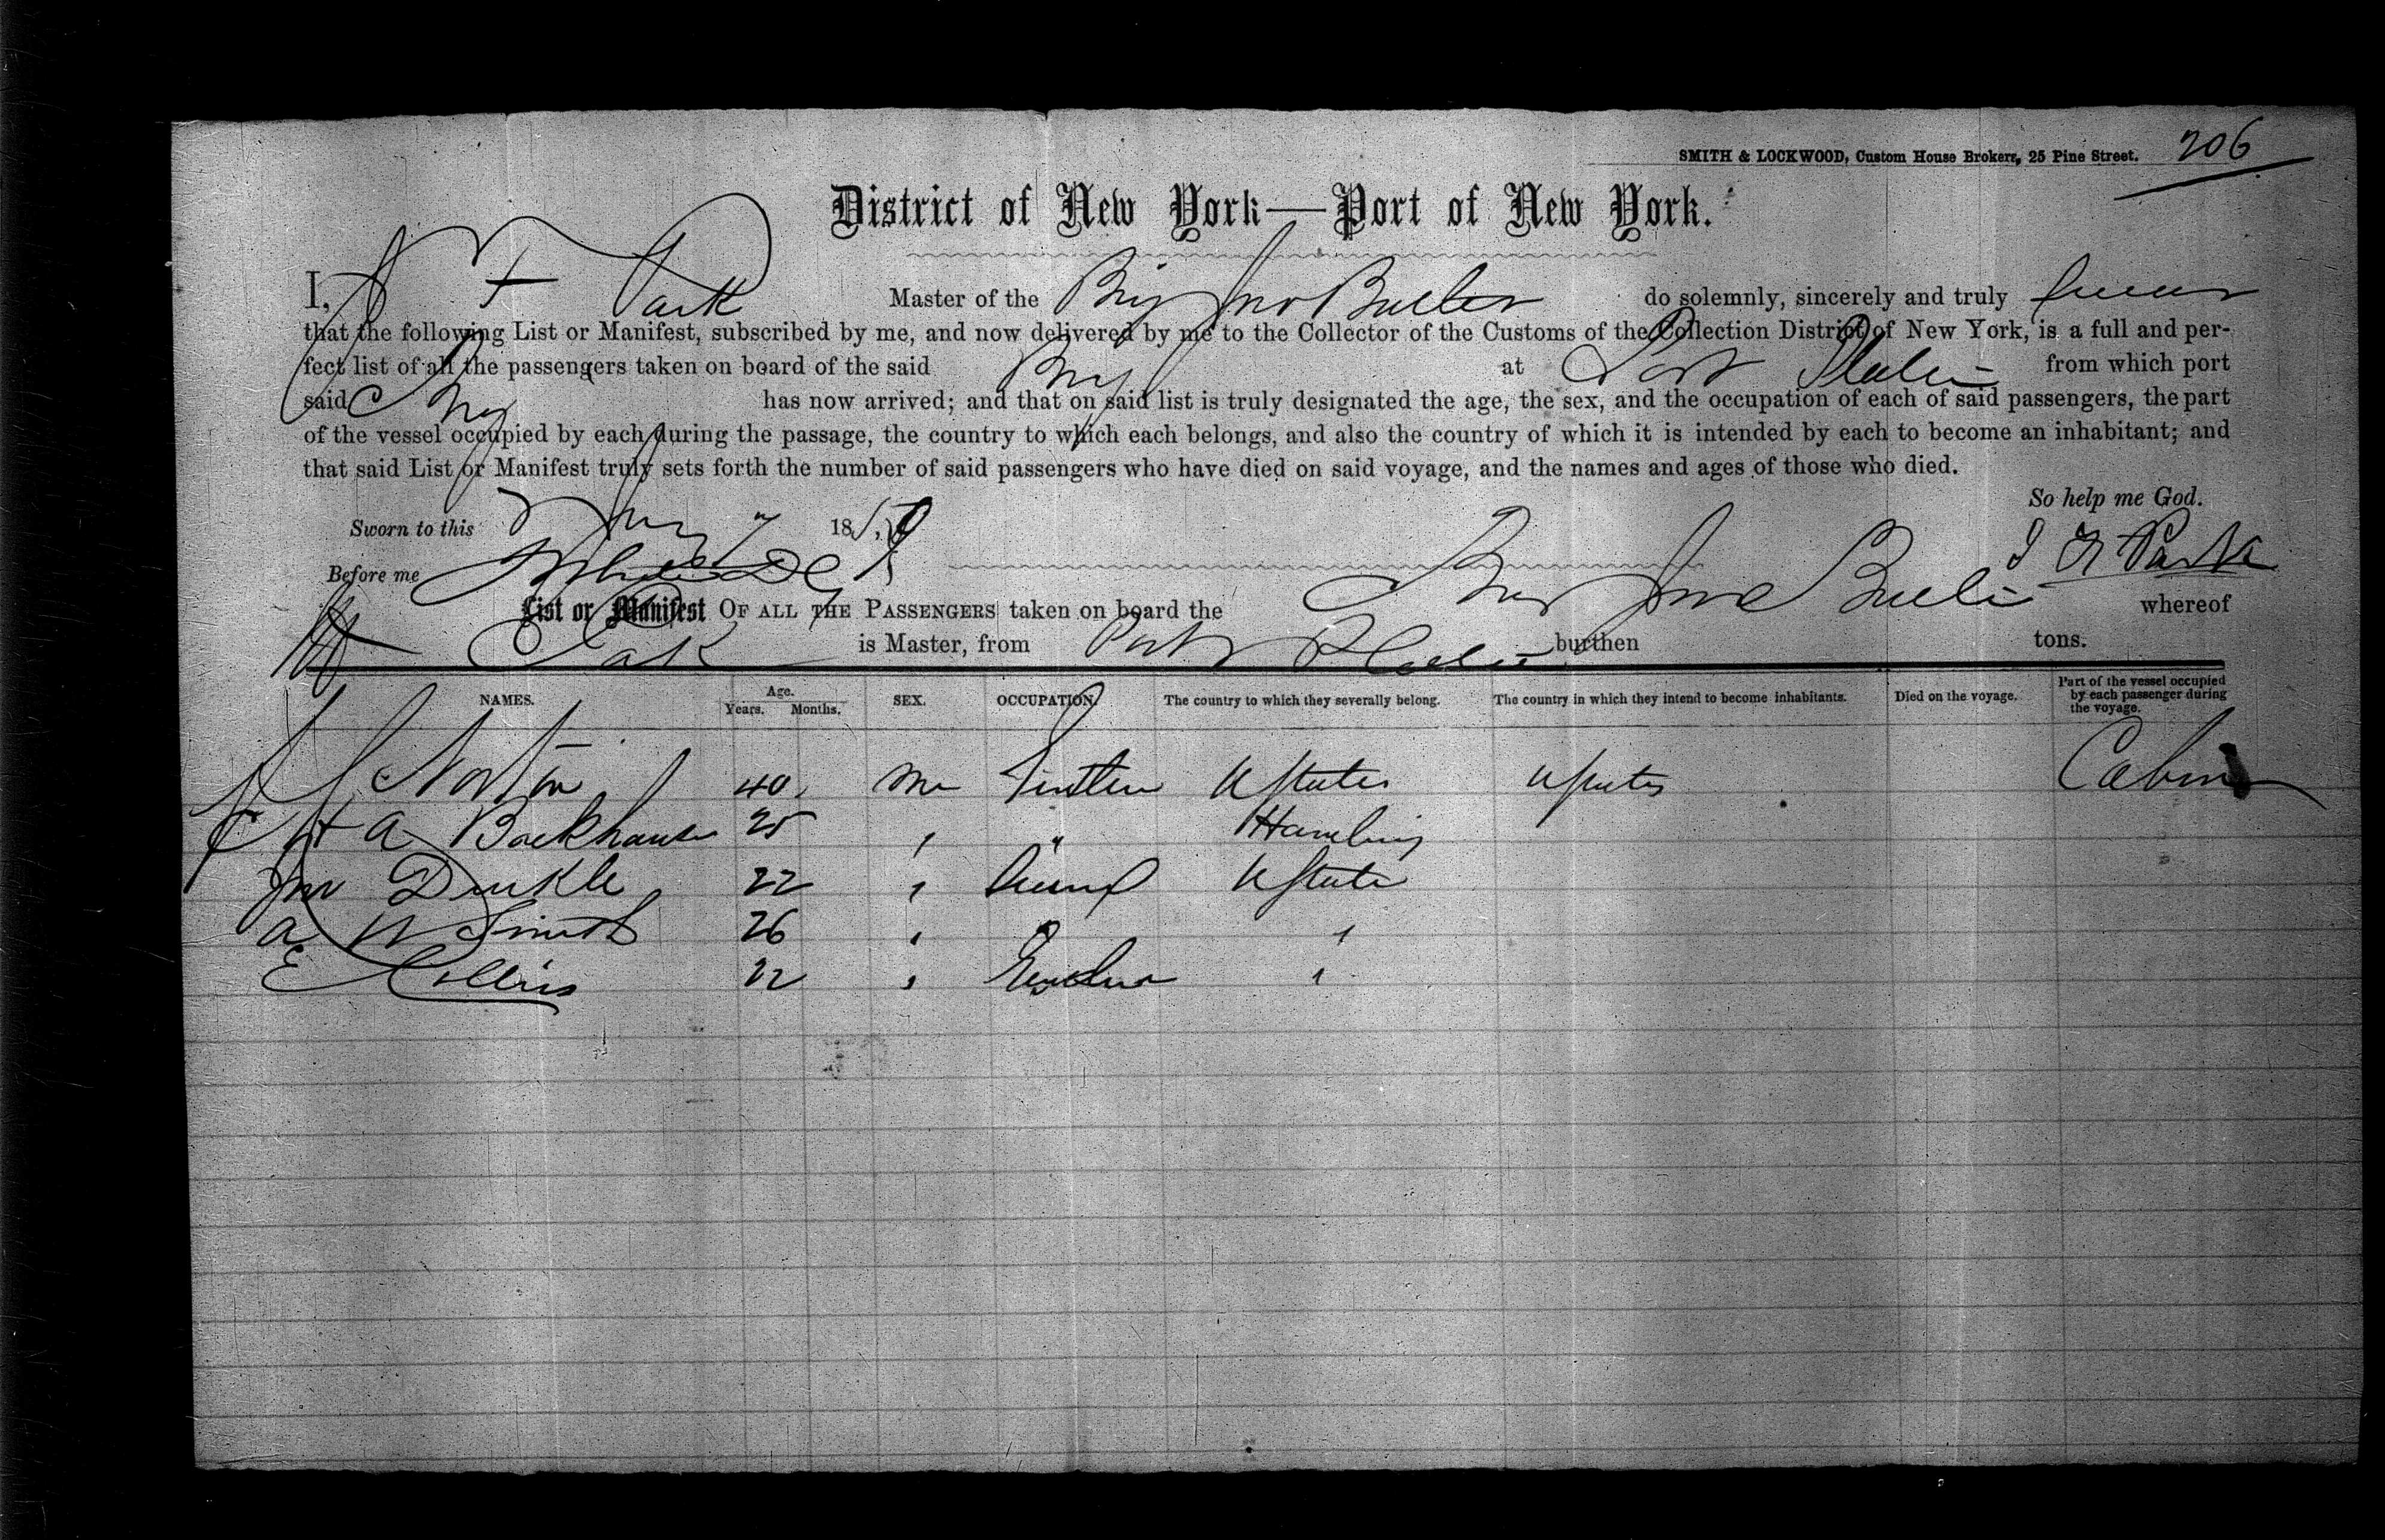 SMITH & LOCKWOOD, Custom House Brokers, 25 Pine Street. 206
District of New York—Port of New York.
I, J F Park Master of the Brig Jno Butler do solemnly, sincerely and truly swear
that the following List or Manifest, subscribed by me, and now delivered by me to the Collector of the Customs of the Collection District of New York, is a full and per-
fect list of all the passengers taken on board of the said Brig at Port from which port
said Brig has now arrived; and that on said list is truly designated the age, the sex, and the occupation of each of said passengers, the part
of the vessel occupied by each during the passage, the country to which each belongs, and also the country of which it is intended by each to become an inhabitant; and
that said List or Manifest truly sets forth the number of said passengers who have died on said voyage, and the names and ages of those who died.
So help me God.
Sworn to this 7 1859
J F Park
Before me
List or Manifest OF ALL THE PASSENGERS taken on board the Brig Jno Butler whereof
Park is Master, from Port burthen tons.
NAMES. Age. Years. Months. SEX. OCCUPATION. The country to which they severally belong. The country in which they intend to become inhabitants. Died on the voyage. Part of the vessel occupied by each passenger during the voyage.
Norton 40 M U States U States Cabin
H A Backhaus 25 " " Hamburg
Jno Dunkle 22 " U State
A W Smith 26 " " "
E Collins 22 " "